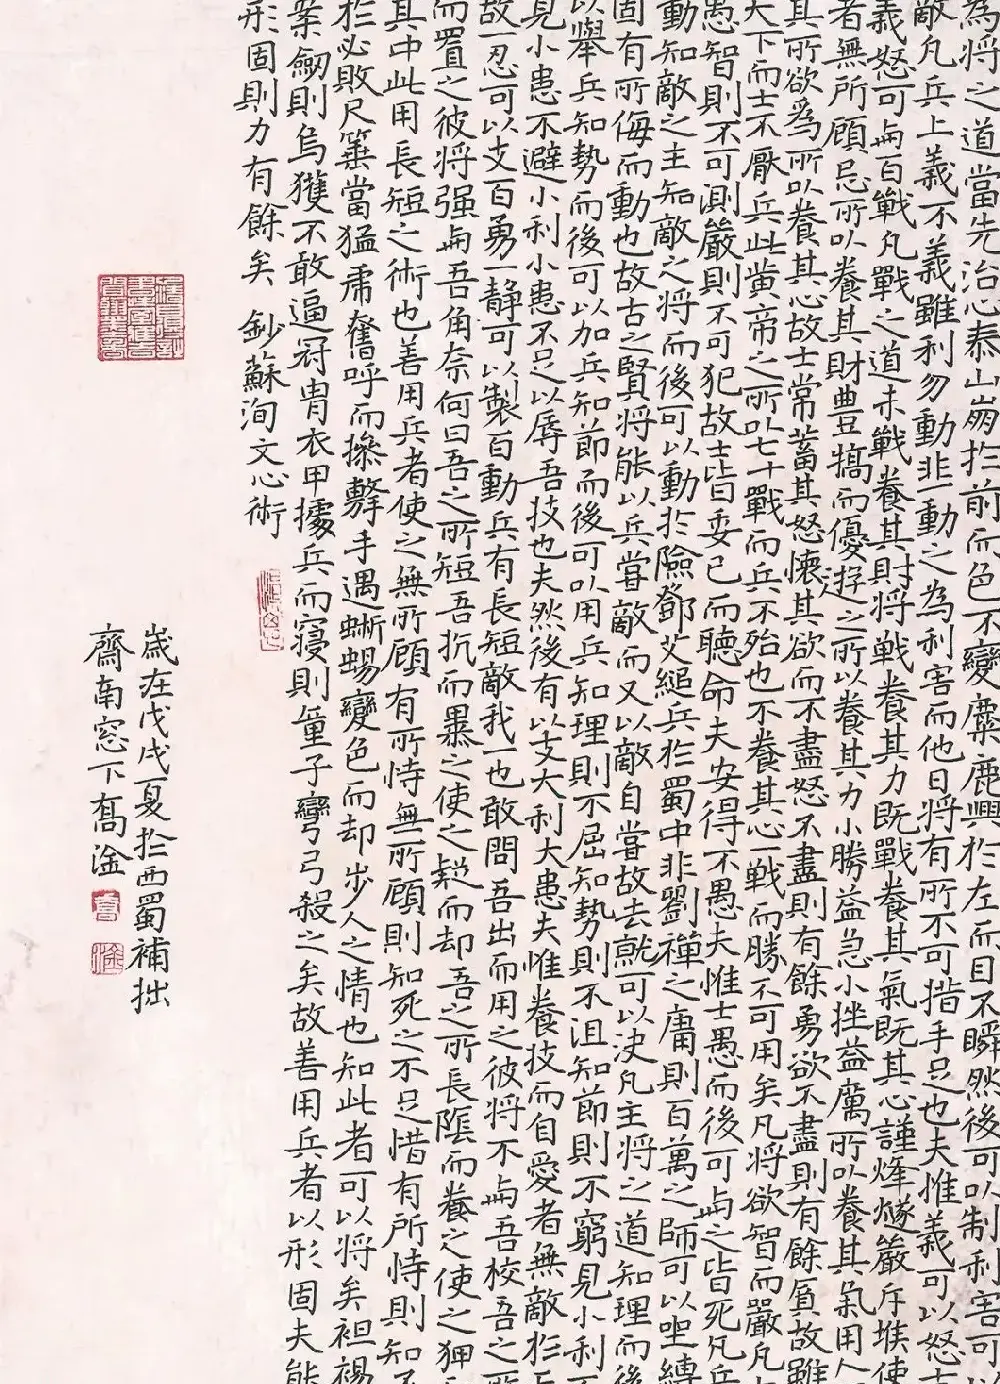 為將之道當先治心泰山崩於前而色不變麋鹿興於左而目不瞬然後可以制利害可
敵凡兵上義不義雖利勿動非一動之為利害而他日將有所不可措手足也夫惟義可以怒士
義怒可與百戰凡戰之道未戰養其財將戰養其力既戰養其氣既其心謹烽燧嚴斥堠使
者無所顧忌所以養其財豊犒而優游之所以養其力小勝益急小挫益厲所以養其氣用人
其所欲爲所以養其心故士常蓄其怒懷其欲而不盡怒不盡則有餘勇欲不盡則有餘貪故雖
天下而士不厭兵此黄帝之所以七十戰而兵不殆也不養其心一戰而勝不可用矣凡將欲智而嚴凡
愚智則不可測嚴則不可犯故士皆委己而聽命夫安得不愚夫惟士愚而後可與之皆死凡兵
動知敵之主知敵之將而後可以動於險鄧艾縋兵於蜀中非劉禪之庸則百萬之師可以坐縛
固有所侮而動也故古之賢將能以兵嘗敵而又以敵自嘗故去就可以決凡主將之道知理而後
以舉兵知勢而後可以加兵知節而後可以用兵知理則不屈知勢則不沮知節則不窮見小利不
見小患不避小利小患不足以辱吾技也夫然後有以支大利大患夫惟養技而自愛者無敵於
故一忍可以支百勇一靜可以製百動兵有長短敵我一也敢問吾出而用之彼將不與吾校吾之
而置之彼將强與吾角奈何曰吾之所短吾抗而暴之使之疑而却吾之所長陰而養之使之狎
其中此用長短之術也善用兵者使之無所顧有所恃無所顧則知死之不足惜有所恃則知不
於必敗尺箠當猛虎奮呼而操擊手遇蜥蜴變色而却步人之情也知此者可以將矣袒裼
案劍則烏獲不敢逼冠冑衣甲據兵而寢則童子彎弓殺之矣故善用兵者以形固夫能
形固則力有餘矣 鈔蘇洵文心術
歲在戊戌夏於西蜀補拙
齋南窓下髙淦